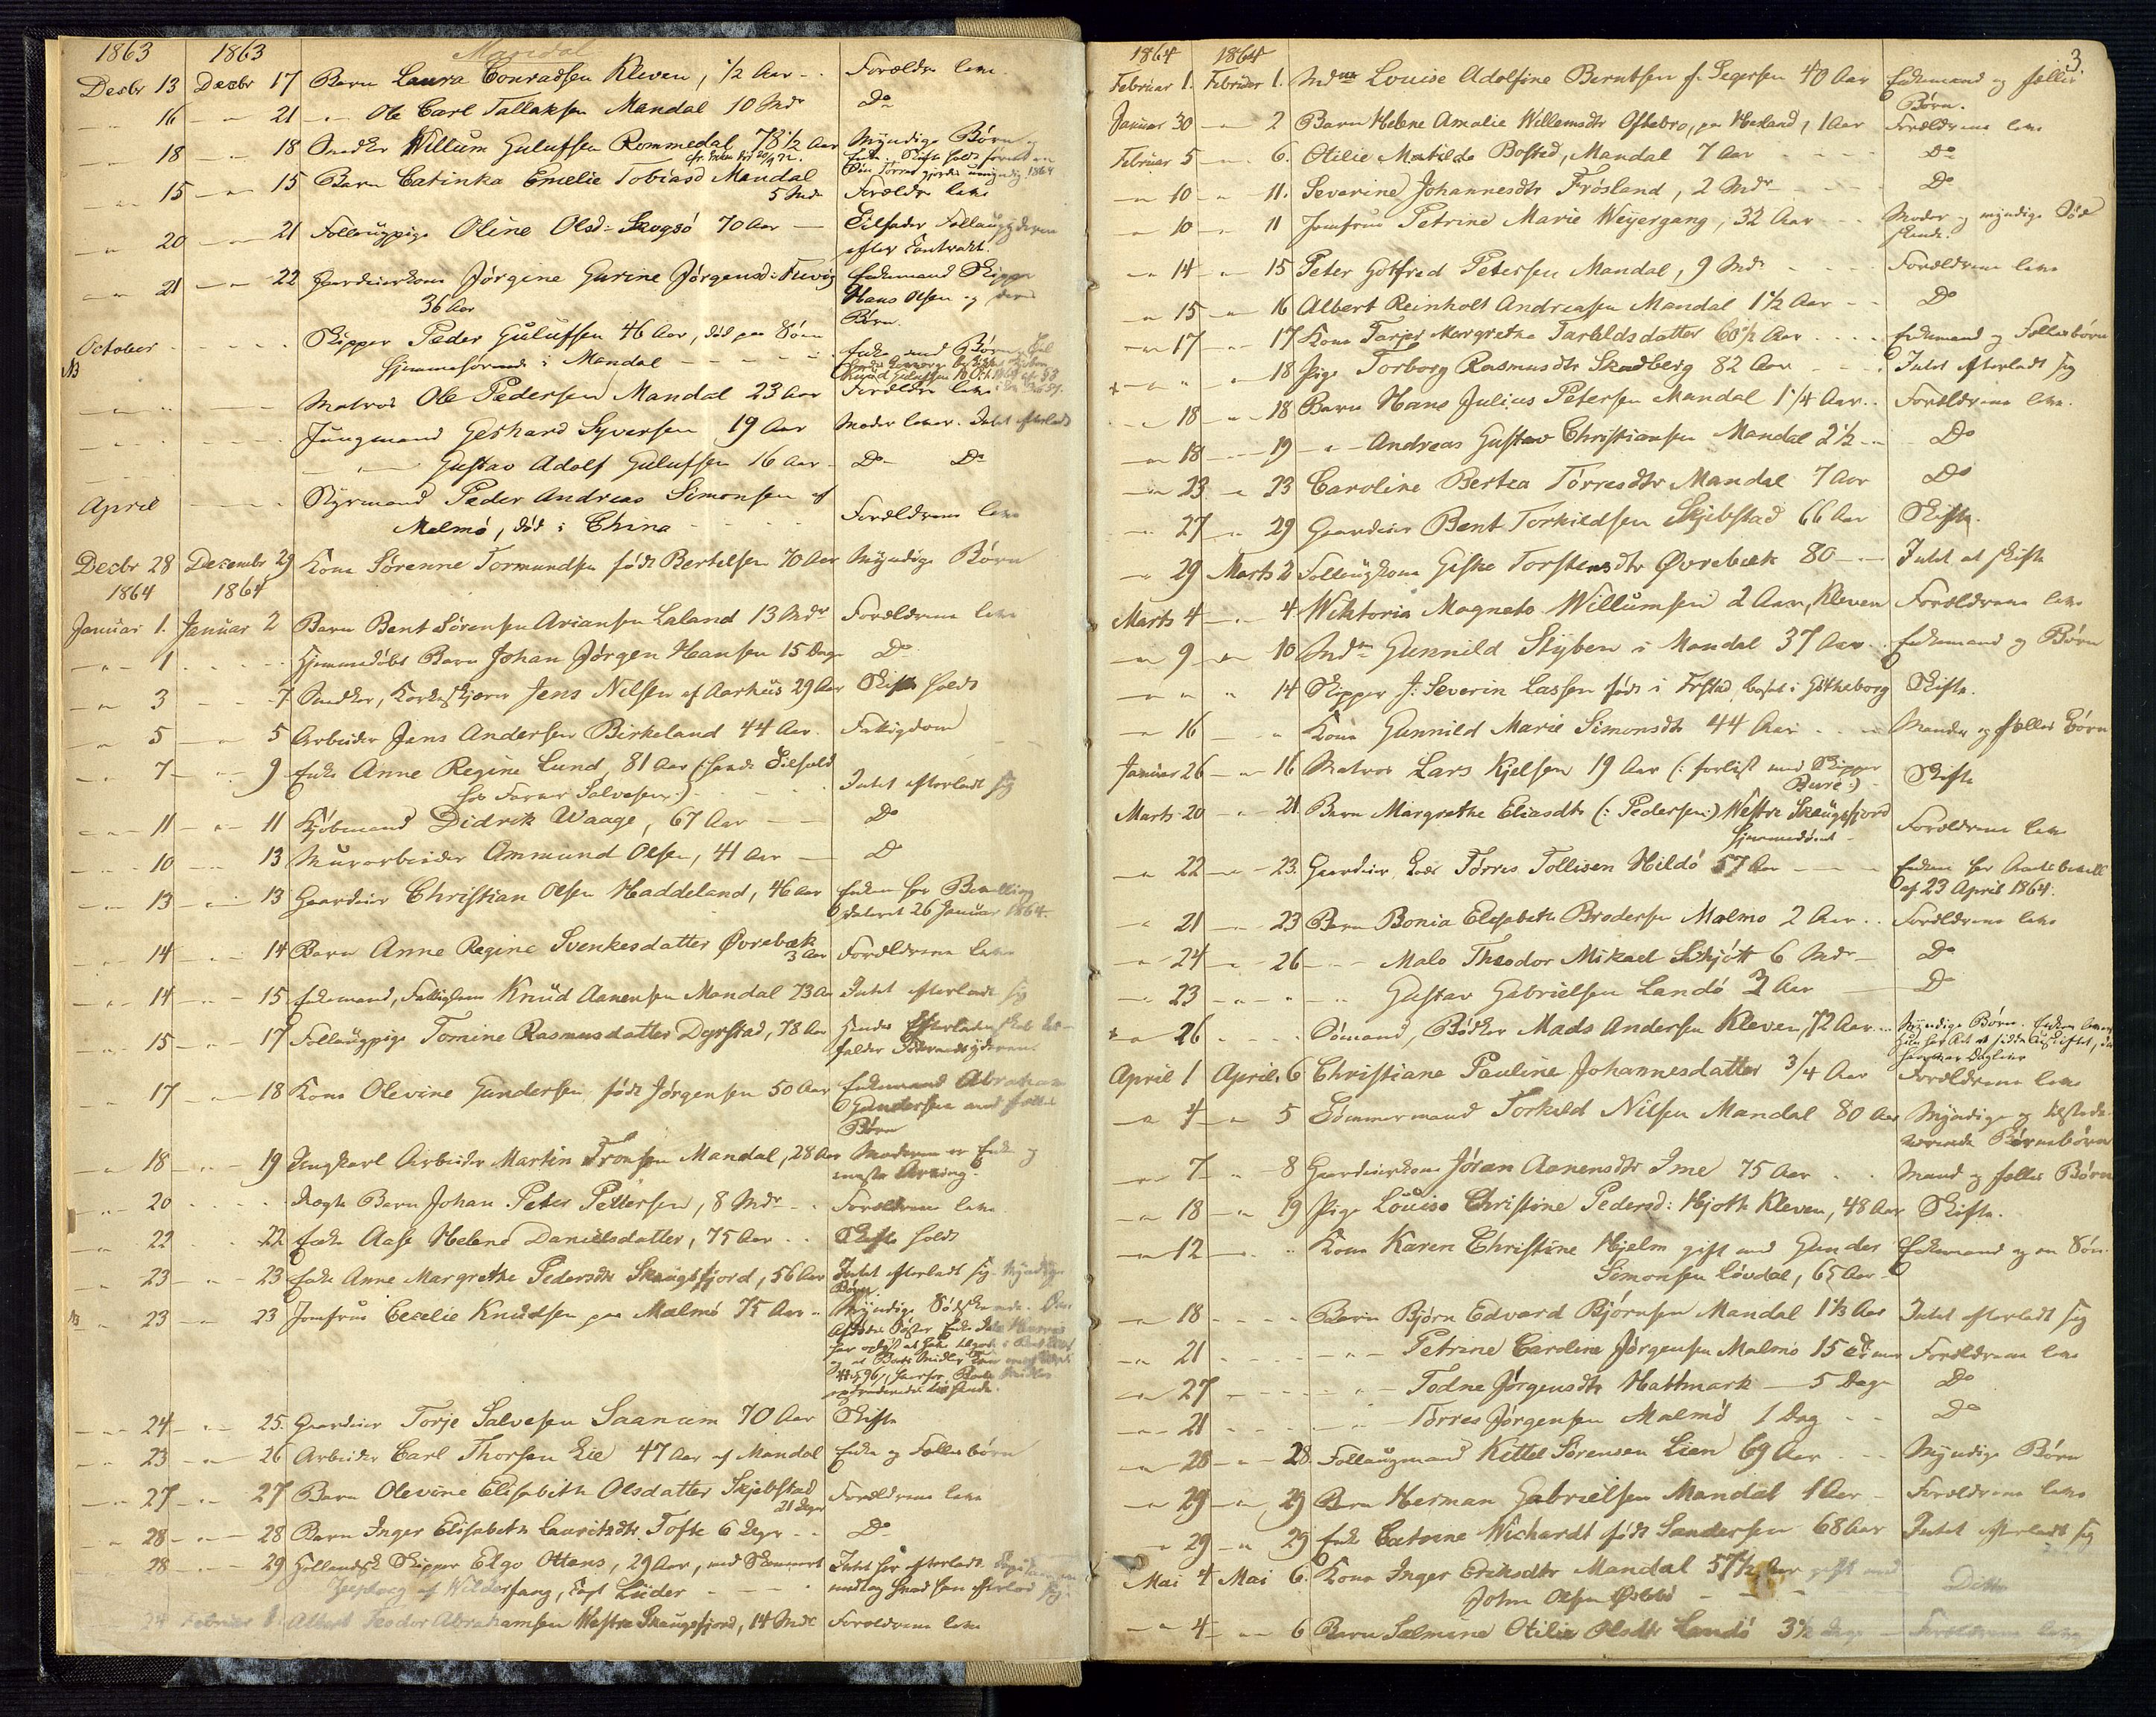 Mandal
1863 1863
Decbr 13 Decbr 17 Barn Laura Conradsen Kleven, 1/2 Aar Forældre leve
16 21 Ole Carl Tallaksen Mandal 10 Mdr Do
18 18 Snedker Willum Gulufsen Rommedal 78 1/2 Aar Myndige Børn
15 15 Barn Catinka Emelie Tobiasd Mandal
5 Mdr Forældre leve
20 21 Follaugpige Oline Olsd: Skogsø 70 Aar Tilfader Follaugyderen
efter Contrakt.
21 22 Gaardmandskone Jørgine Gurine Jørgensd: Enkemand Skipper
36 Aar Hans Olsen og deres
Børn.
October Skipper Peder Gulufsen 46 Aar, død paa Søen
NB hjemmehørende i Mandal
Matros Ole Pedersen Mandal 23 Aar Forældre leve
Jungmand Gerhard Syversen 19 Aar Moder lever. Intet efterladt
Gustav Adolf Gulufsen 16 Aar Do Do
April Styrmand Peder Andreas Simonsen af
Malmø, død i China Forældrene leve
Decbr 28 Decembr 29 Kone Sørenne Tormundsen født Bertelsen 70 Aar Myndige Børn
1864 1864
Januar 1. Januar 2 Barn Bent Sørensen Ariansen Laland 13 Mdr Forældrene leve
1 Hjemmedøbt Barn Johan Jørgen Hansen 15 Dage Do
3 7 Snedker, Jens Nilsen af Aarhus 29 Aar Skifte holdt
5 5 Arbeider Jens Andersen Birkeland 44 Aar. Fattigdom
7 9 Enke Anne Regine Lund, 81 Aar (: havde Tilhold
hos Farver Salvesen:) Intet efterladt sig
11 11 Kjøbmand Didrik Waage, 67 Aar Do
10 13 Murarbeider Ommund Olsen, 41 Aar Do
13 13 Gaardmand Christian Olsen Haddeland, 46 Aar Enken har Bevilling
dateret 26 Januar 1864.
14 14 Barn Anne Regine Svenkesdatter Øvrebæk
3 Aar Forældrene leve
14 15 Enkemand, Fattiglem Knud Aanensen Mandal 73 Aar Intet efterladt sig
15 17 Follaugpige Tomine Rasmusdatter Dyrstad, 78 Aar Hendes Efterladenskab til-
falder Føderaadsyderen
17 18 Kone Olevine Gundersen født Jørgensen 50 Aar Enkemand Abraham
Gundersen med fælles
Børn
18 19 Ungkarl Arbeider Martin Tronsen Mandal, 28 Aar Moderen er Enke og
eneste Arving.
20 Uægte Barn Johan Peter Pettersen, 8 Mdr Forældrene leve
22 22 Enke Aase Helene Danielsdatter, 75 Aar Skifte holdt
23 23 Enke Anne Margrethe Pedersdtr Skaugsfjord, 56 Aar Intet efterladt sig. Myndige
Børn
NB 23 23 Jomfru Cecelie Knudsen paa Malmø 75 Aar Myndige Sødskende.
24 25. Gaardmand Torje Salvesen Saanum 70 Aar Skifte
23 26 Arbeider Carl Thorsen Lie 47 Aar af Mandal Enke og Fællesbørn
27 27 Barn Olevine Elisabeth Olsdatter Skjebstad
21 Dage Forældrene leve
28 28 Barn Inger Elisabeth Lauritsdtr Tofte 6 Dage Do
28 29 Hollandsk Skipper Elgo Ottens, 29 Aar, med Intet her efterladt
af Wildersfang, Capt Lüder
24 Februar 1. Albert Teodor Abrahamsen Westre Skaugsfjord, 14 Mdr Forældrene leve
3.
1864 1864
Februar 1. Februar 1. Mdme Louise Adolfine Berntsen f. Segersen 40 Aar Enkemand og fælles
Børn.
Januar 30 2 Barn Helene Amalie Willemsdtr Oftebro, paa Hesland, 1 Aar Forældrene leve
Februar 5 6. Otilie Matilde Bosted, Mandal 7 Aar Do
10 11. Severine Johannesdtr Frøsland, 2 Mdr Do
10 11 Jomfru Petrine Marie Weyergang, 32 Aar Moder og myndige Sød-
skende.
14 15 Peter Gotfred Petersen Mandal, 9 Mdr Forældrene leve
15 16 Albert Reinholt Andreasen Mandal 1 1/2 Aar Do
17 17 Kone Tarjer Margrethe Taraldsdatter 60 1/2 Aar Enkemand og Fællesbørn
18 Pige Torborg Rasmusdtr Skadberg 82 Aar Intet efterladt sig
18 18 Barn Hans Julius Petersen Mandal 1 1/4 Aar Forældrene leve.
18 19 Andreas Gustav Christiansen Mandal 2 1/2 Do
23 23 Caroline Bertea Tørresdtr Mandal 7 Aar Do
27 29 Gaardmand Bent Torkildsen Skjebstad 66 Aar Skifte.
29 Marts 2 Follaugkone Giske Torstensdtr Øvrebæk 80 Intet at skifte
Marts 4 4 Wiktoria Magneta Willumsen 2 Aar, Kleven Forældrene leve
9 10 Mdm Gunnild Styben i Mandal 37 Aar Enkemand og Børn
14 Skipper J: Severin Lassen født i Frstad, bosat i Gøtheborg Skifte.
16 Kone Gunnild Marie Simonsdtr 44 Aar Manden og fælles Børn
Januar 26 16 Matros Lars Kjelsen 19 Aar (: forlist med Skipper
Burre:) Skifte
Marts 20 21 Barn Margrethe Eliasdtr (: Pedersen:) Westre Skaugsfjord
Hjemmedøbt Forældrene leve
22 23. Gaardmand Tørres Tollisen Hildø 57 Aar Enken har Amtsbevill
af 23 April 1864.
21 23 Barn Bonia Elisabeth Brodersen Malmø 2 Aar Forældrene leve
24 26 Malo Theodor Mikael Schjøtt 6 Mdr Do
23 Gustav Gabrielsen Landø 3 Aar Do
26 Sømand, Bødker Mads Andersen Kleven, 72 Aar Myndige Børn.
April 1 April. 6 Christiane Pauline Johannesdatter 3/4 Aar Forældrene leve
4 5 Tømmermand Torkild Nilsen Mandal 80 Aar Myndige og tilstede-
værende Børnebørn
7 8 Gaardmandskone Jøran Aanensdtr Ime 75 Aar Mand og fælles Børn
18 19 Pige Louise Christine Pedersd: Hjorth Kleven, 48 Aar Skifte.
12 Kone Karen Christine Hjelm gift med Gunder Enkemand og en Søn
Simonsen Løvdal, 65 Aar
18 Barn Bjørn Edvard Bjørnsen Mandal 1 1/3 Aar Intet efterladt sig
21 Petrine Caroline Jørgensen Malmø 15 Forældrene leve
27 Todne Jørgensdtr Hattmark 5 Dage Do
21 Tørres Jørgensen Malmø 1 Dag Do
28 28. Follaugmand Kittel Sørensen Lien 69 Aar Myndige Børn
29 29 Barn Herman Gabrielsen Mandal 1 Aar Forældrene leve
29 29 Enke Catrine Wichardt født Sandersen 68 Aar Intet efterladt sig
Mai 4 Mai 6. Kone Inger Eriksdtr Mandal 57 1/2 Aar gift med
John Olsen Ditto
4 6 Barn Salmine Otilie Olsdtr Landø 3 1/2 Dage Forældrene leve